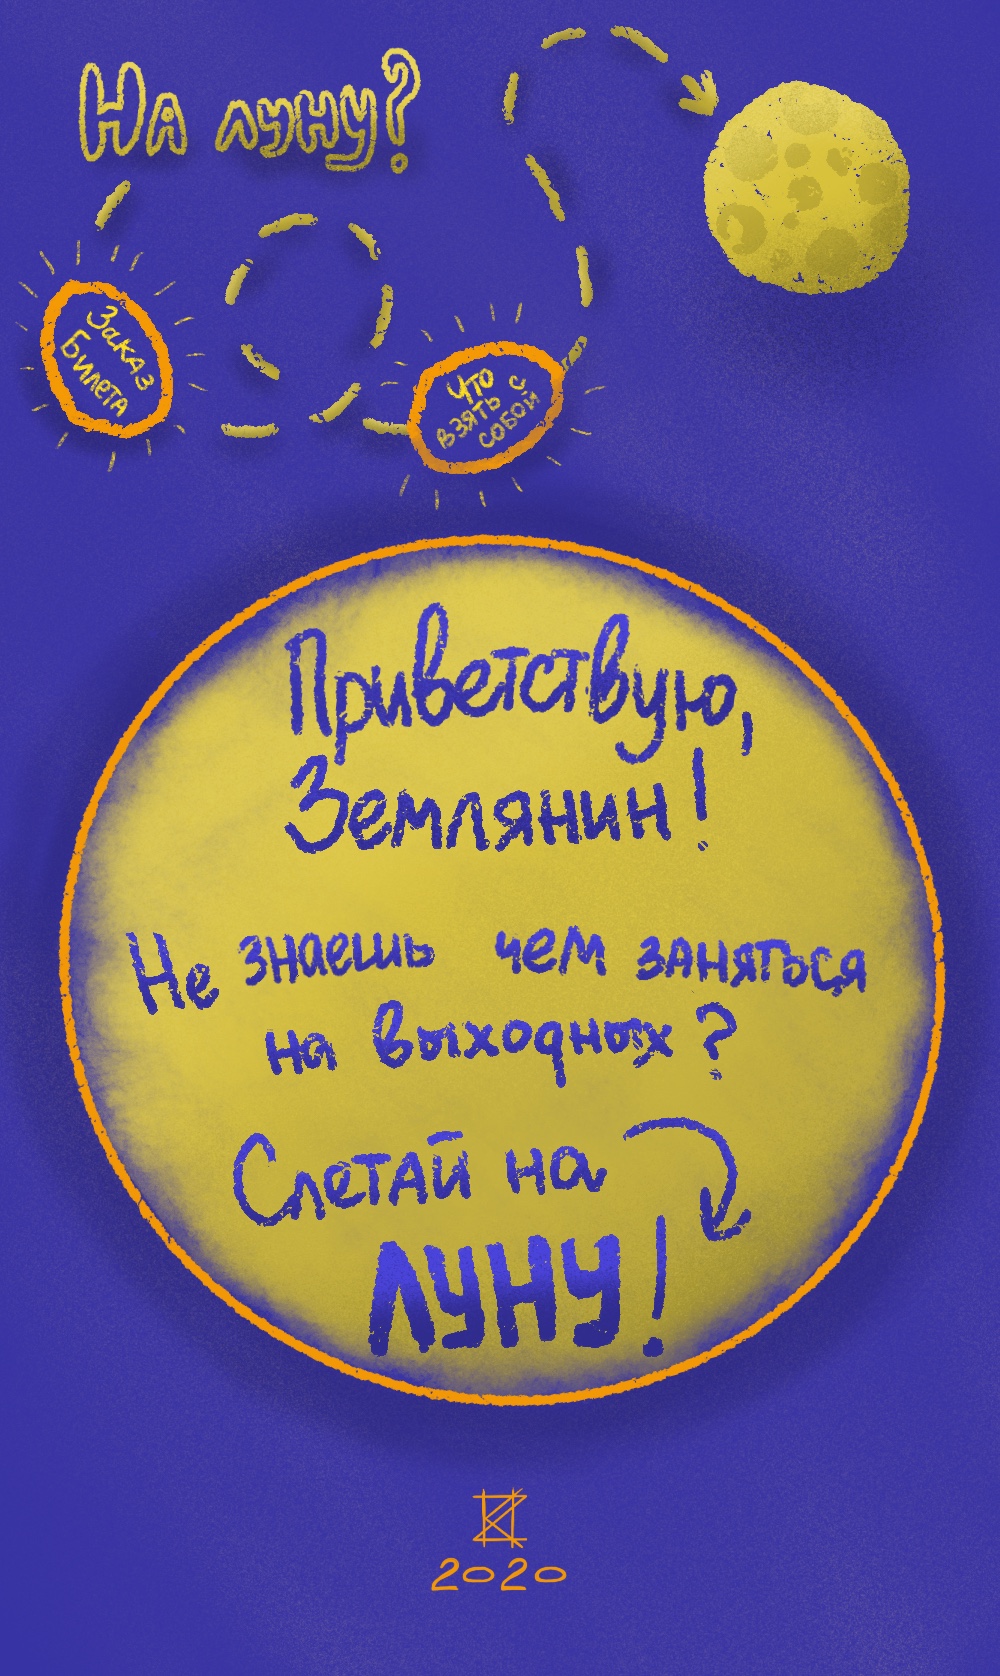 На луну?
Заказ
Билета
Что
взять с
собой
Приветствую,
Землянин!
Не знаешь чем заняться
на выходных?
Слетай на
ЛУНУ!
2020